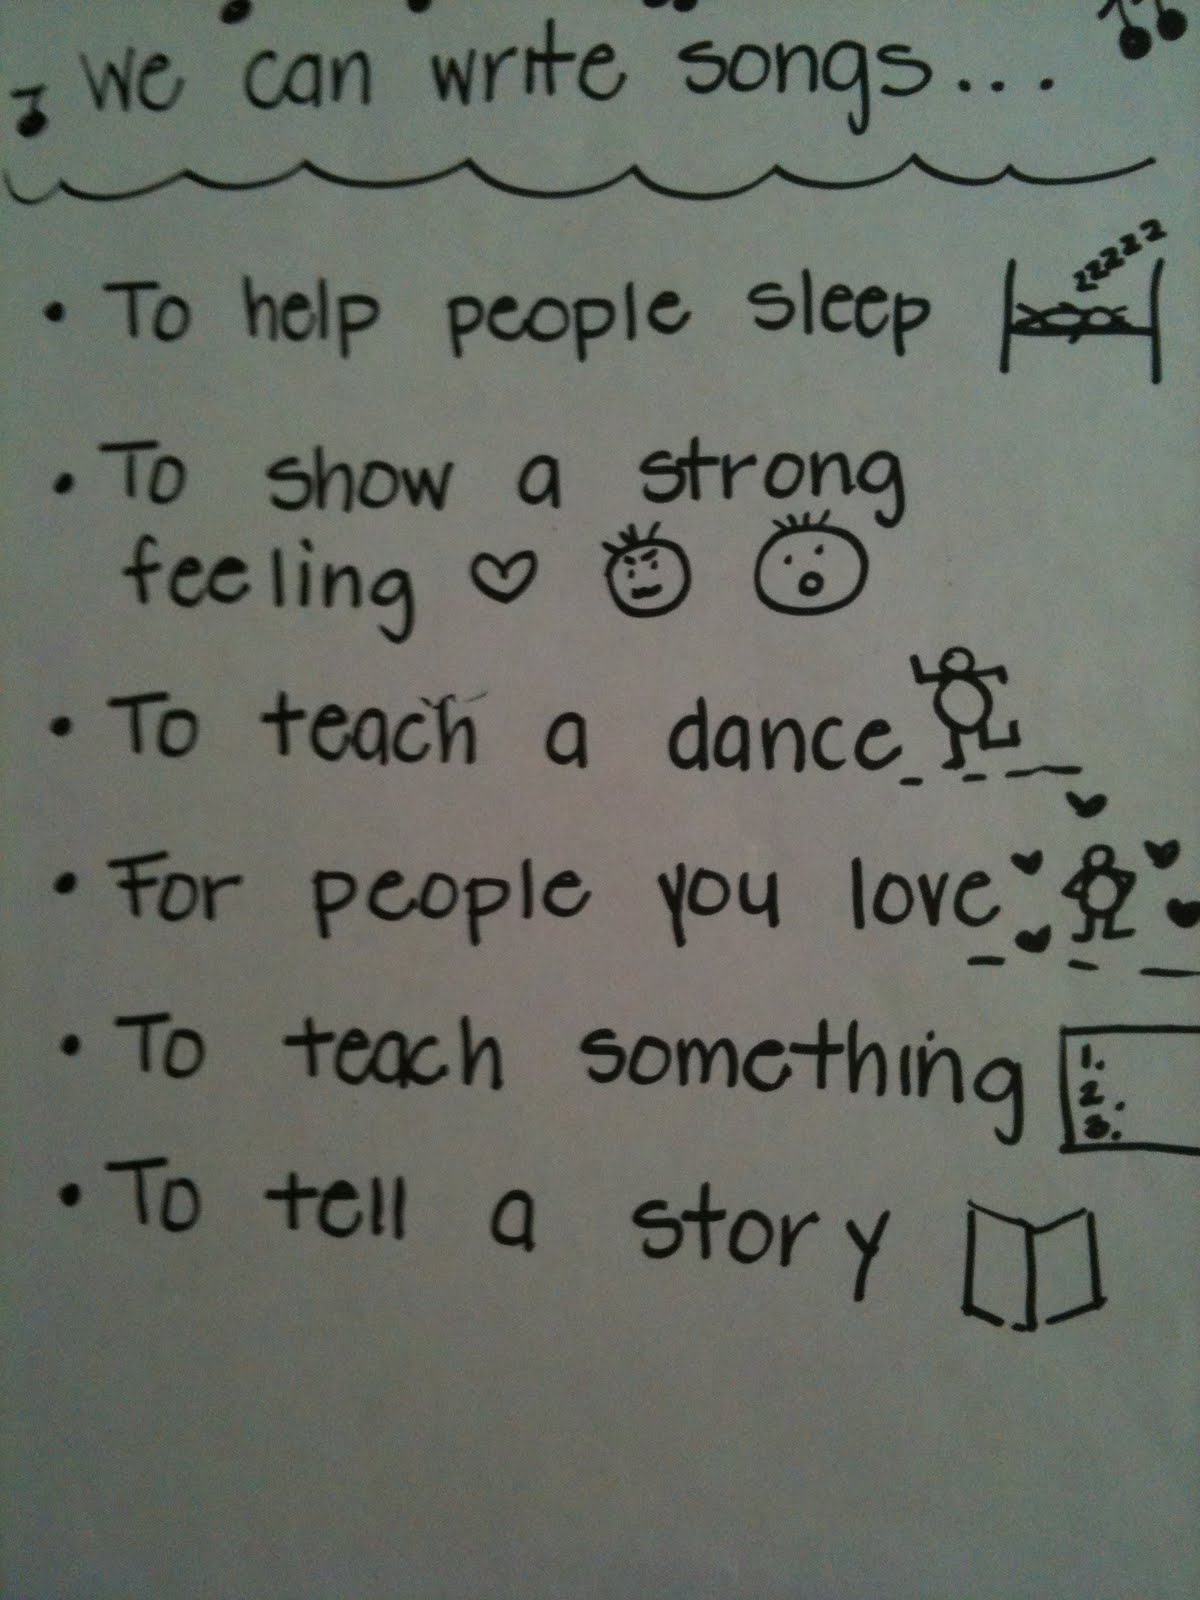 We can write songs...
• To help people sleep zzzzz
• To show a strong
feeling
• To teach a dance
• For people you love
• To teach something
1.
2.
3.
• To tell a story